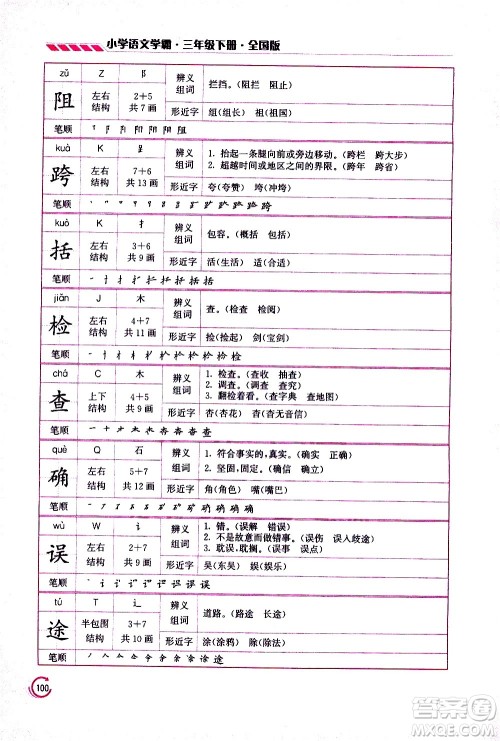 小学语文学霸·三年级下册·全国版
zǔ Z 阝 辨义组词 拦挡。(阻拦 阻止)
阻 左右结构 2+5 共7画 形近字 组(组长) 祖(祖国)
笔顺
kuà K 辨义组词 1. 抬起一条腿向前或旁边移动。(跨栏 跨大步)
2. 超越时间或地区之间的界限。(跨年 跨省)
跨 左右结构 7+6 共13画 形近字 夸(夸赞) 垮(冲垮)
笔顺
kuò K 扌 辨义组词 包容。(概括 包括)
括 左右结构 3+6 共9画 形近字 活(生活) 适(合适)
笔顺
jiǎn J 木 辨义组词 查。(检查 检阅)
检 左右结构 4+7 共11画 形近字 捡(捡起) 剑(宝剑)
笔顺
chá C 木 辨义组词 1. 检查。(查收 抽查)
2. 调查。(调查 查究)
3. 翻检着看。(查字典 查资料)
查 上下结构 4+5 共9画 形近字 杏(杏花) 杳(杳无音信)
笔顺
què Q 石 辨义组词 1. 符合事实的,真实的。(确实 正确)
2. 坚固,固定。(确信 确立)
确 左右结构 5+7 共12画 形近字 角(角色) 嘴(嘴巴)
笔顺
wù W 讠 辨义组词 1. 错。(误解 错误)
2. 不是故意而做错事。(误伤 误入歧途)
3. 耽误,耽搁。(误事 误点)
误 左右结构 2+7 共9画 形近字 吴(东吴) 娱(娱乐)
笔顺
tú T 辶 辨义组词 道路。(路途 长途)
途 半包围结构 3+7 共10画 形近字 涂(涂鸦) 除(除法)
笔顺
100
作业帮